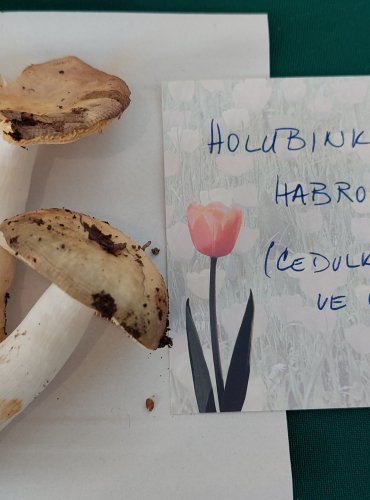 HOLUBINK
HABRO
(CEDULK
VE